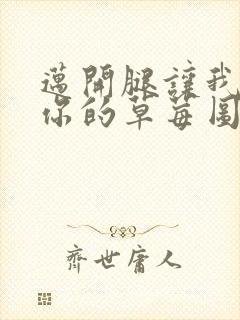 邁開腿讓我
你的草莓圖
齊世庸人